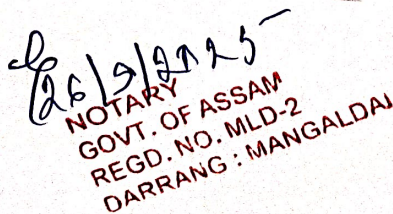 26/9/2025
NOTARY
GOVT. OF ASSAM
REGD. NO. MLD-2
DARRANG : MANGALDAI